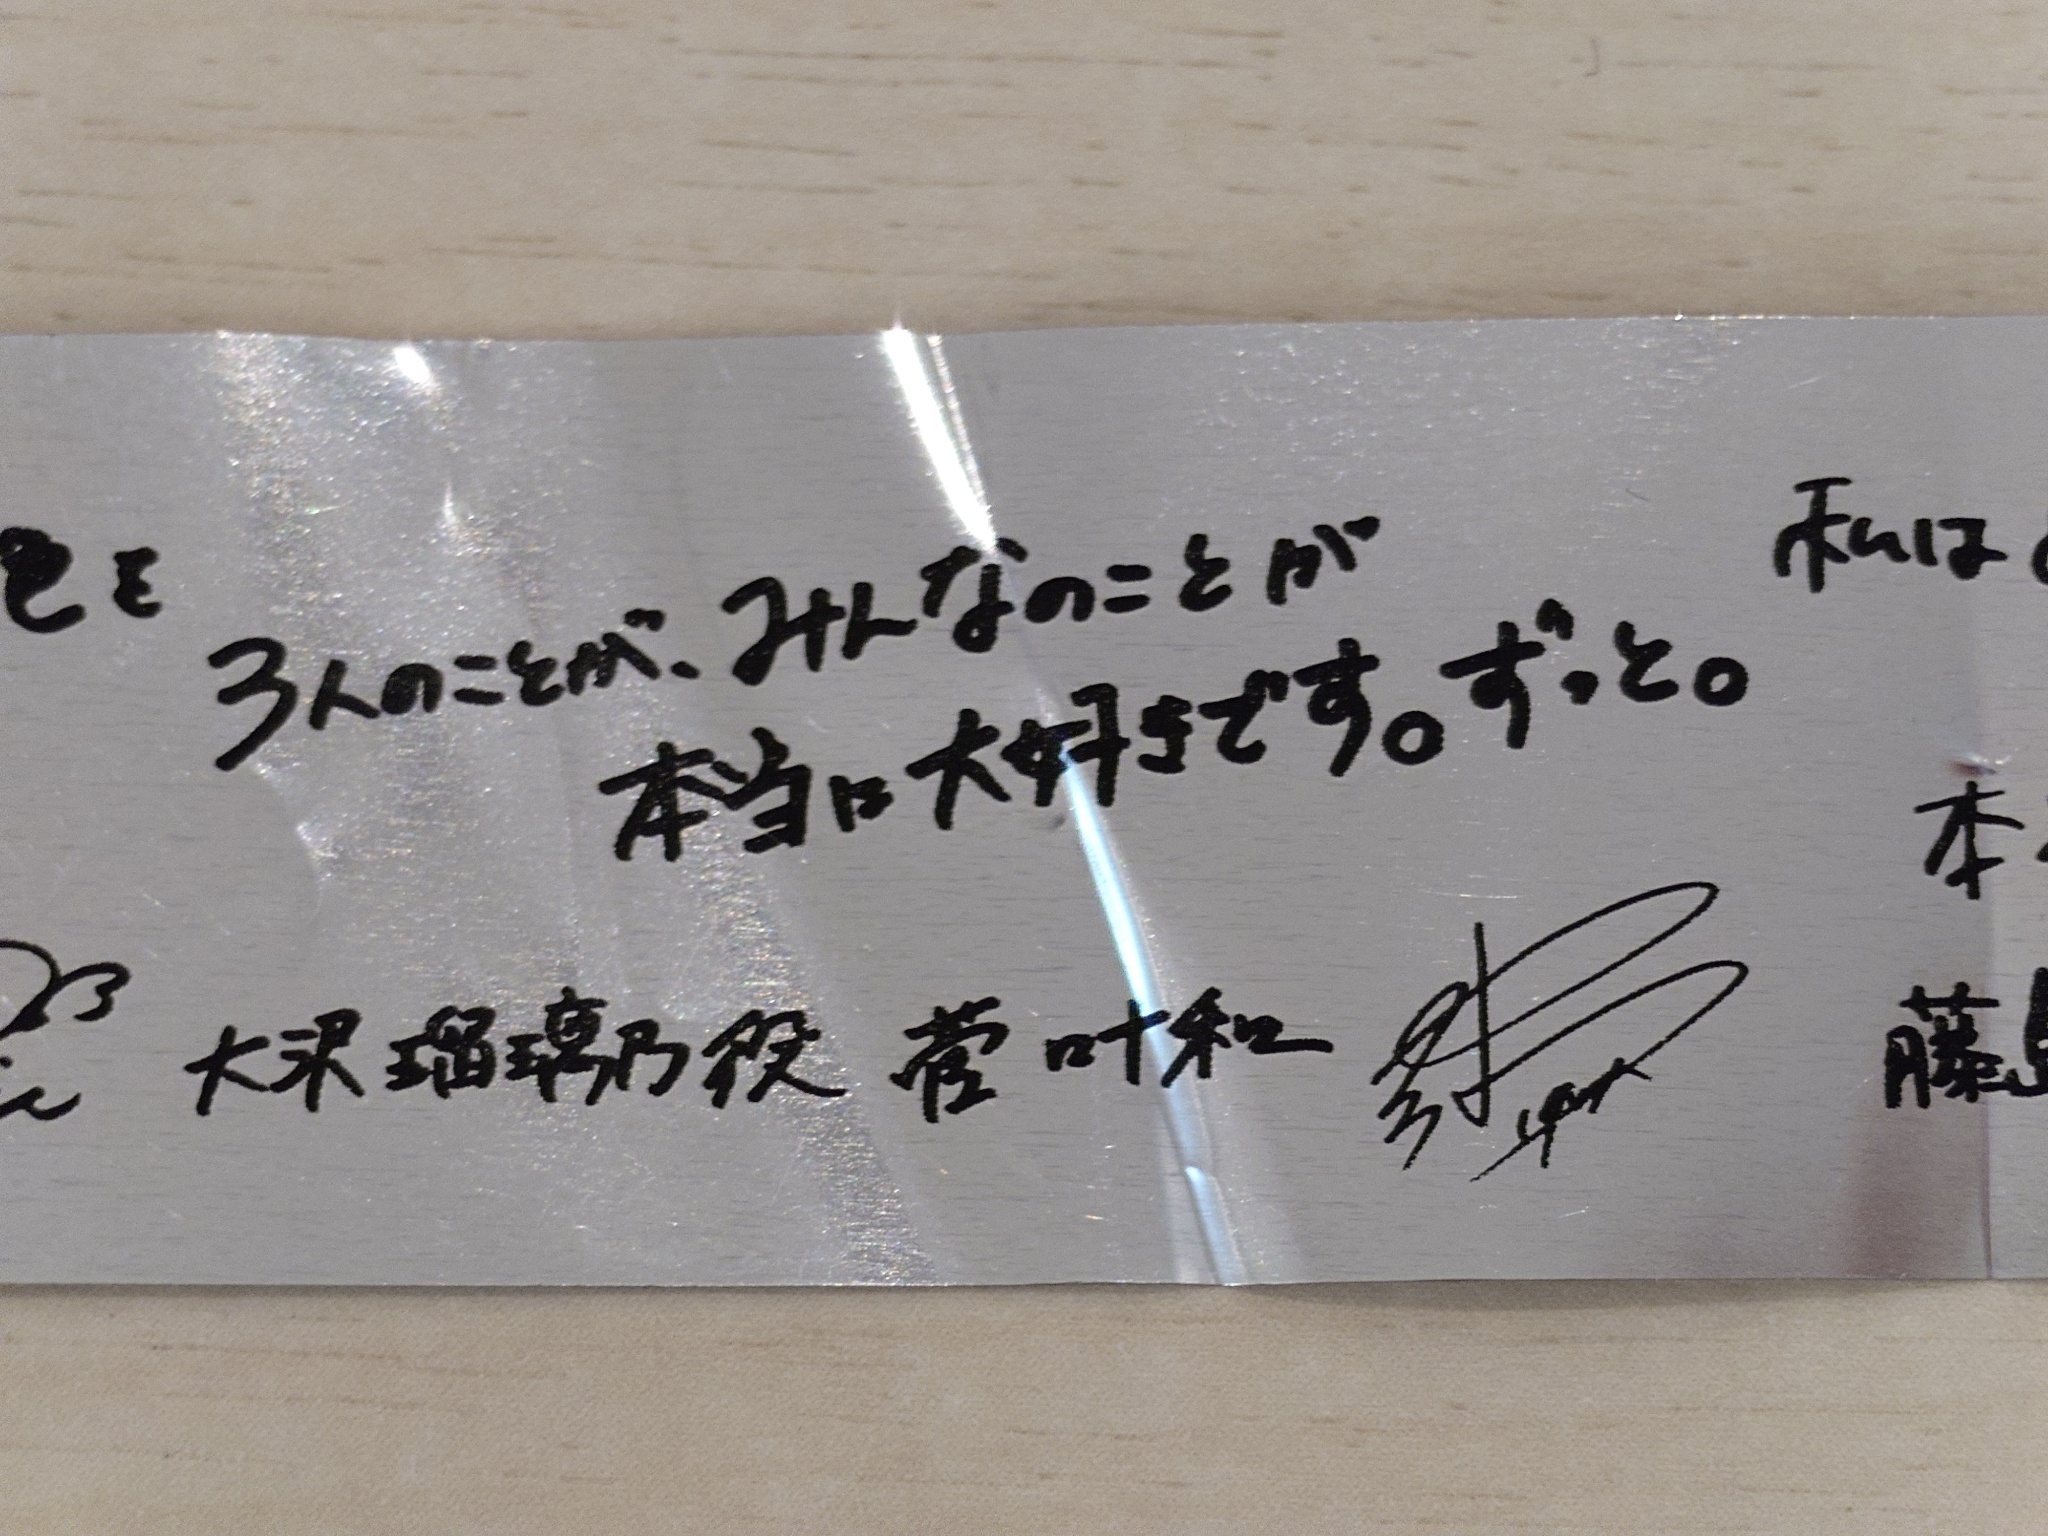 色を
3人のことが、みんなのことが
本当に大好きです。ずっと。
大沢瑠璃乃役 菅叶和
私は
本
藤島